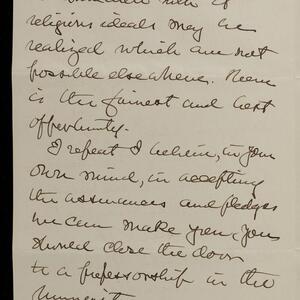 religious ideals may be
realized which are not
possible elsewhere. Here
is the fairest and best
opportunity.
I repeat I believe, in your
own mind, in accepting
the assurances and pledges
we can make you, you
should close the door
to a professorship in the